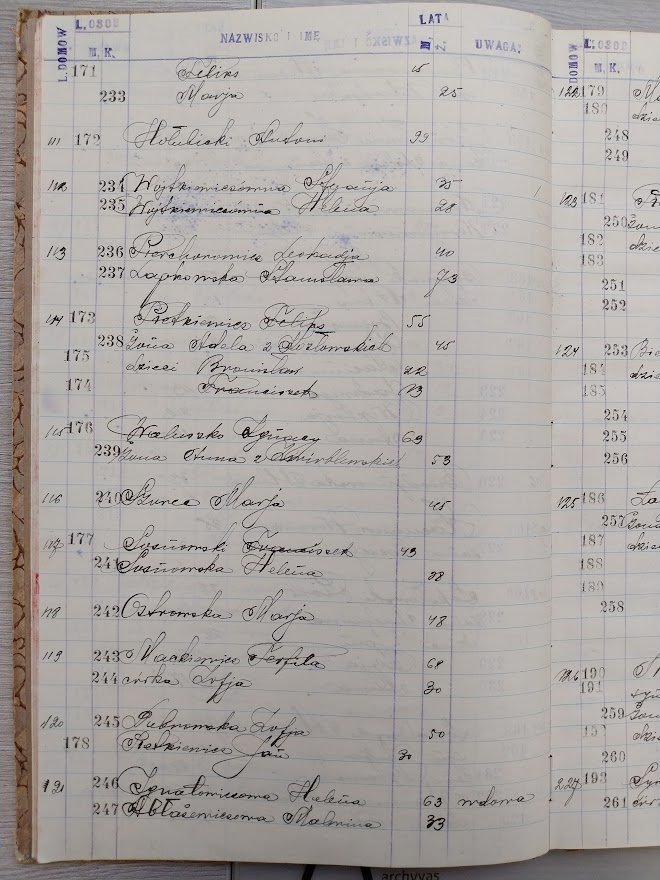 L. DOMÓW L. OSÓB NAZWISKO I IMĘ LATA UWAGA:
M. K. M. Ż.
171 Feliks 15
233 Marja 25
111 172 Hołubicki Antoni 99
112 234 Wojtkiewiczówna Stefanja 35
235 Wojtkiewiczówna Helena 28
113 236 Pierchorowicz Leokadja 40
237 Łapkowska Stanisława 73
114 173 Pietkiewicz Feliks 55
238 żona Adela z Kozłowskich 45
175 dzieci Bronisław 22
174 Franciszek 13
115 176 Waluszko Ignacy 63
239 żona Anna z Zwirblewskich 53
116 240 Szurca Marja 45
117 177 Sosnowski Franciszek 43
241 Sosnowska Helena 38
118 242 Ostrowska Marja 48
119 243 Mackiewicz Teofila 68
244 córka Zofja 30
120 245 Dubrowska Zofja 50
178 Pietkiewicz Jan 30
121 246 Ignatowiczowa Helena 63 wdowa
247 Abłażewiczowa Malwina 33
DOMÓW L. OSÓB
M. K.
122 179
180
248
249
123 181
250 żona
182
183
251
252
124 253
184
185
254
255
256
125 186
257 żona
187
188
189
258
126 190
191
259 żona
260
227 193
261
archyvas